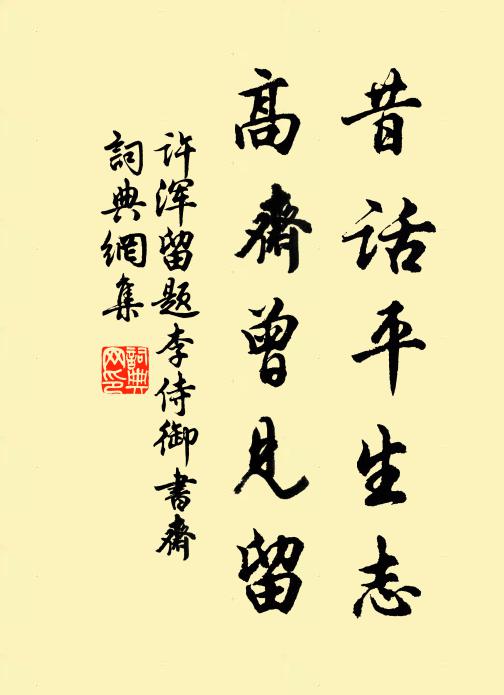 昔话平生志
高斋曾见留
许浑留题李侍御书斋
词典网集
词典网印